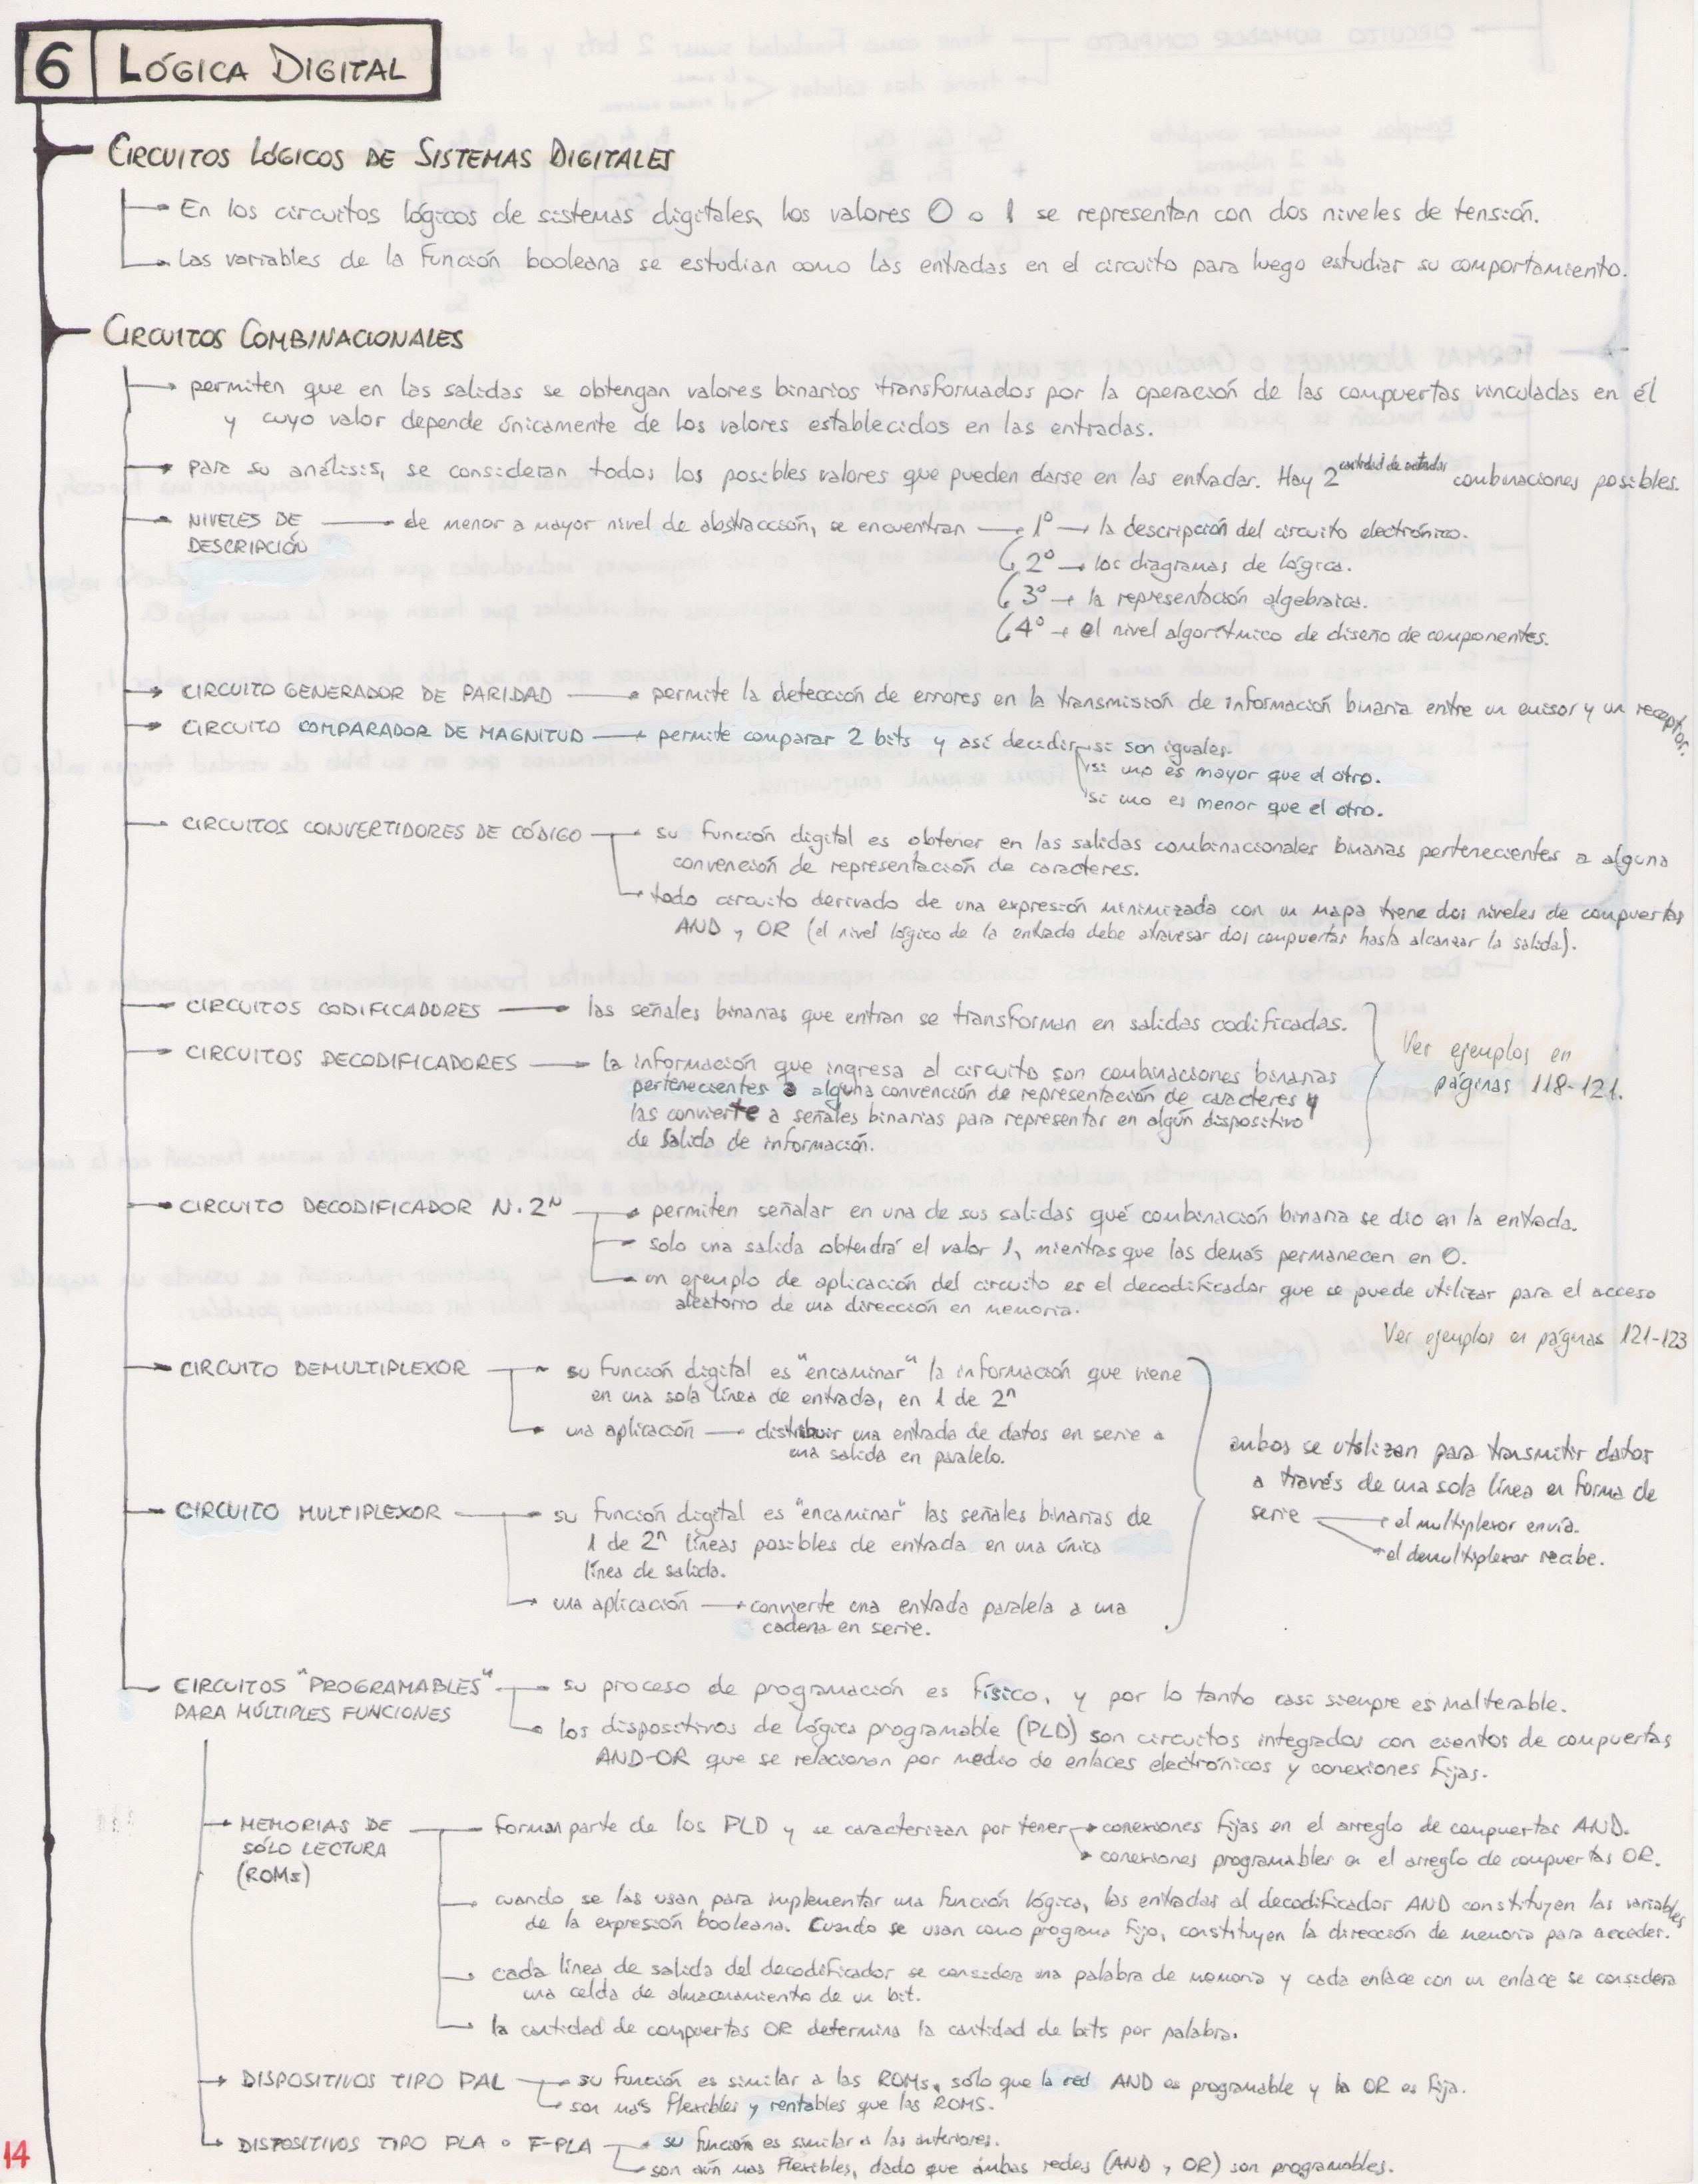 6 LÓGICA DIGITAL
CIRCUITOS LÓGICOS DE SISTEMAS DIGITALES
En los circuitos lógicos de sistemas digitales, los valores 0 o 1 se representan con dos niveles de tensión.
Las variables de la función booleana se estudian como las entradas en el circuito para luego estudiar su comportamiento.
CIRCUITOS COMBINACIONALES
permiten que en las salidas se obtengan valores binarios transformados por la operación de las compuertas vinculadas en él
y cuyo valor depende únicamente de los valores establecidos en las entradas.
para su análisis, se consideran todos los posibles valores que pueden darse en las entradas. Hay 2^cantidad de entradas combinaciones posibles.
NIVELES DE DESCRIPCIÓN → de menor a mayor nivel de abstracción, se encuentran → 1° → la descripción del circuito electrónico.
2° → los diagramas de lógica.
3° → la representación algebraica.
4° → el nivel algorítmico de diseño de componentes.
CIRCUITO GENERADOR DE PARIDAD → permite la detección de errores en la transmisión de información binaria entre un emisor y un receptor.
CIRCUITO COMPARADOR DE MAGNITUD → permite comparar 2 bits y así decidir si son iguales.
si uno es mayor que el otro.
si uno es menor que el otro.
CIRCUITOS CONVERTIDORES DE CÓDIGO → su función digital es obtener en las salidas combinacionales binarias pertenecientes a alguna
convención de representación de caracteres.
todo circuito derivado de una expresión minimizada con un mapa tiene dos niveles de compuertas
AND y OR (el nivel lógico de la entrada debe atravesar dos compuertas hasta alcanzar la salida).
CIRCUITOS CODIFICADORES → las señales binarias que entran se transforman en salidas codificadas.
CIRCUITOS DECODIFICADORES → la información que ingresa al circuito son combinaciones binarias
pertenecientes a alguna convención de representación de caracteres y
las convierte a señales binarias para representar en algún dispositivo
de salida de información.
Ver ejemplos en
páginas 118-121.
CIRCUITO DECODIFICADOR N.2^N → permiten señalar en una de sus salidas qué combinación binaria se dio en la entrada.
solo una salida obtendrá el valor 1, mientras que las demás permanecen en 0.
un ejemplo de aplicación del circuito es el decodificador que se puede utilizar para el acceso
aleatorio de una dirección en memoria.
Ver ejemplos en páginas 121-123
CIRCUITO DEMULTIPLEXOR → su función digital es "encaminar" la información que viene
en una sola línea de entrada, en 1 de 2^n
una aplicación → distribuir una entrada de datos en serie a
una salida en paralelo.
CIRCUITO MULTIPLEXOR → su función digital es "encaminar" las señales binarias de
1 de 2^n líneas posibles de entrada en una única
línea de salida.
una aplicación → convierte una entrada paralela a una
cadena en serie.
ambos se utilizan para transmitir datos
a través de una sola línea en forma de
serie → el multiplexor envía.
el demultiplexor recibe.
CIRCUITOS "PROGRAMABLES" → su proceso de programación es físico, y por lo tanto casi siempre es inalterable.
PARA MÚLTIPLES FUNCIONES
los dispositivos de lógica programable (PLD) son circuitos integrados con cientos de compuertas
AND-OR que se relacionan por medio de enlaces electrónicos y conexiones fijas.
MEMORIAS DE SÓLO LECTURA (ROMs) → forman parte de los PLD y se caracterizan por tener → conexiones fijas en el arreglo de compuertas AND.
conexiones programables en el arreglo de compuertas OR.
cuando se las usan para implementar una función lógica, las entradas al decodificador AND constituyen las variables
de la expresión booleana. Cuando se usan como programa fijo, constituyen la dirección de memoria para acceder.
cada línea de salida del decodificador se considera una palabra de memoria y cada enlace con un enlace se considera
una celda de almacenamiento de un bit.
la cantidad de compuertas OR determina la cantidad de bits por palabra.
DISPOSITIVOS TIPO PAL → su función es similar a las ROMs, sólo que la red AND es programable y la OR es fija.
son más flexibles y rentables que las ROMS.
DISPOSITIVOS TIPO PLA o F-PLA → su función es similar a las anteriores.
son aún mas flexibles, dado que ambas redes (AND y OR) son programables.
14